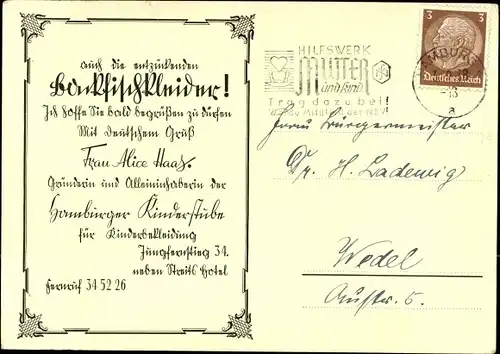 auch die entzückenden
Backfischkleider!
Ich hoffe Sie bald begrüßen zu dürfen
Mit Deutschem Gruß
Frau Alice Haas.
Gründerin und Alleininhaberin der
Hamburger Kinderstube
für Kinderbekleidung
Jungfernstieg 34.
neben Streits Hotel
Fernruf 34 52 26
HILFSWERK
MUTTER
und Kind
Trag dazu bei!
Werde Mitglied der NSV
3 3
Deutsches Reich
HAMBURG
-13
a
Herrn Bürgermeister
Dr. H. Ladewig
Wedel
5.